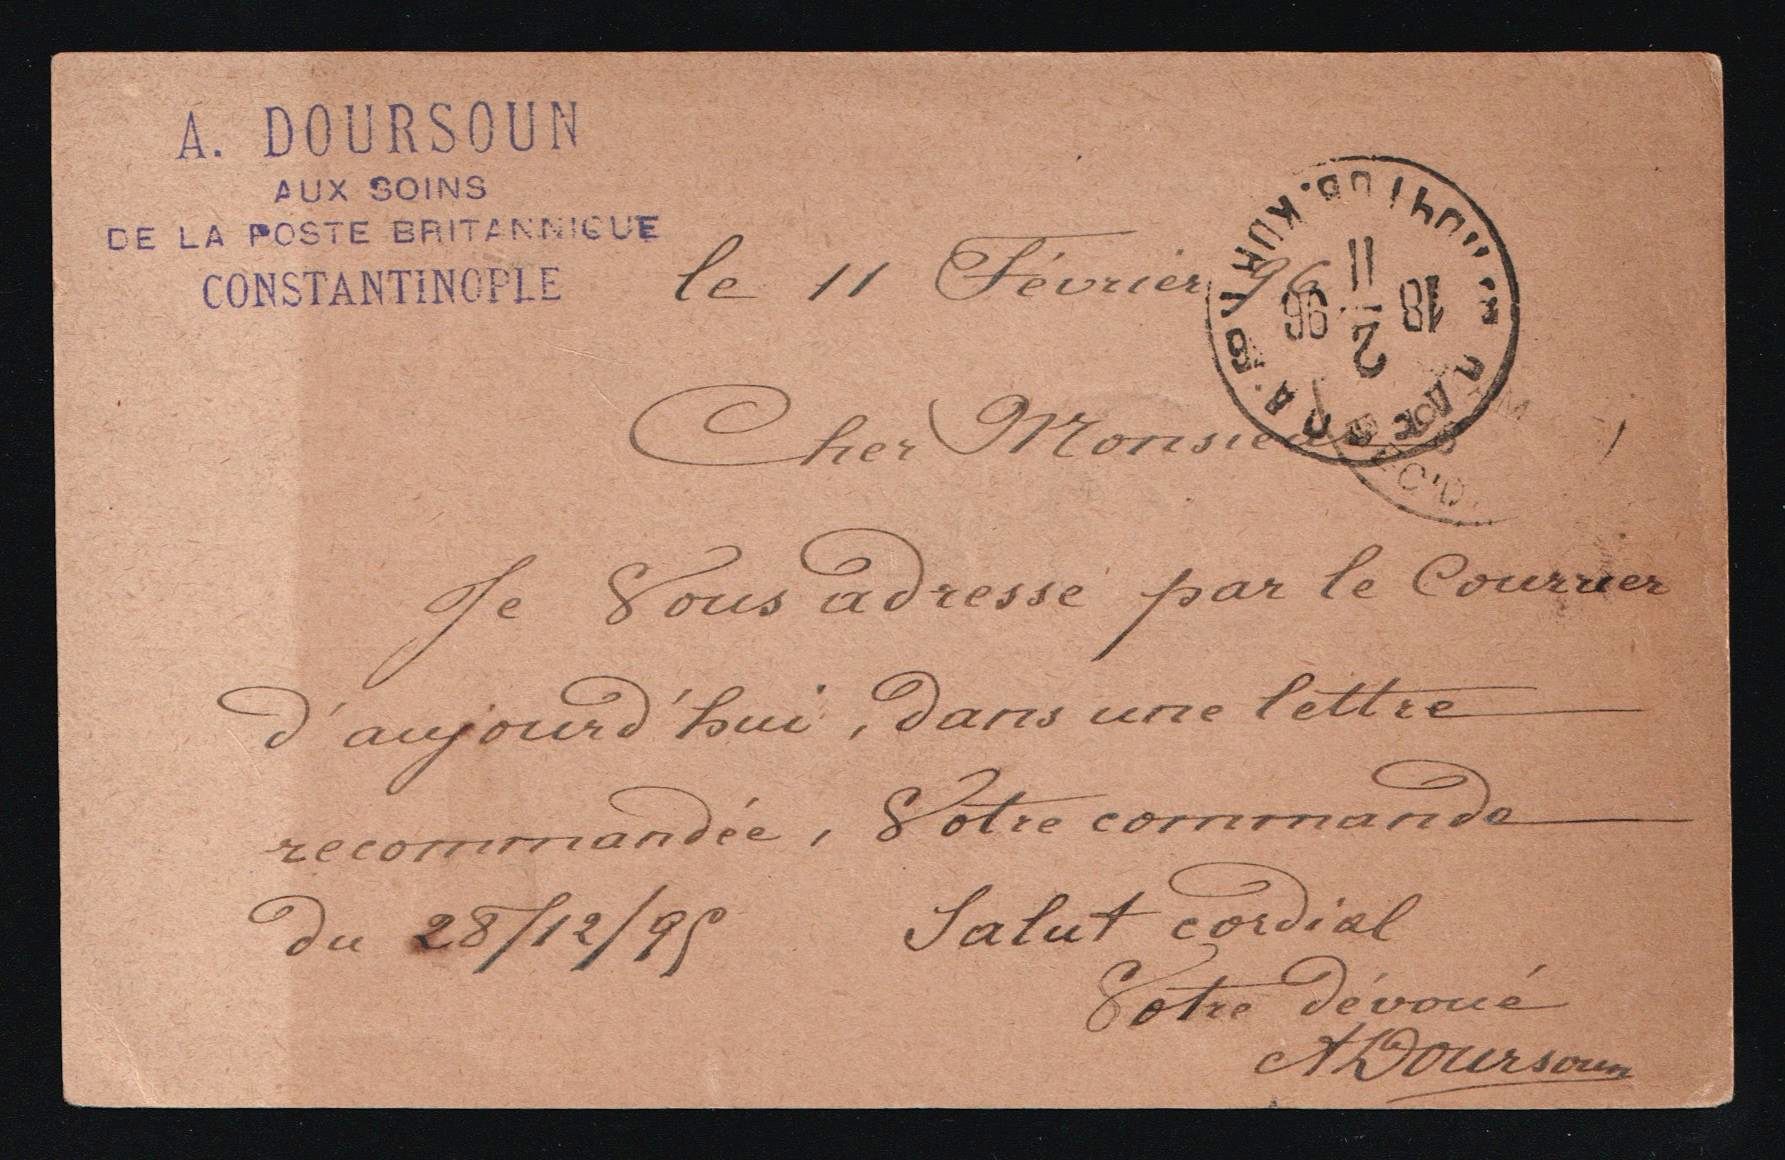 A. DOURSOUN
AUX SOINS
DE LA POSTE BRITANNIQUE
CONSTANTINOPLE
le 11 Février 96
11
2
96
18
Cher Monsieu
Je Vous adresse par le Courrier
d'aujourd'hui, dans une lettre
recommandée, Votre commande
du 28/12/95 Salut cordial
Votre dévoué
A Doursoun